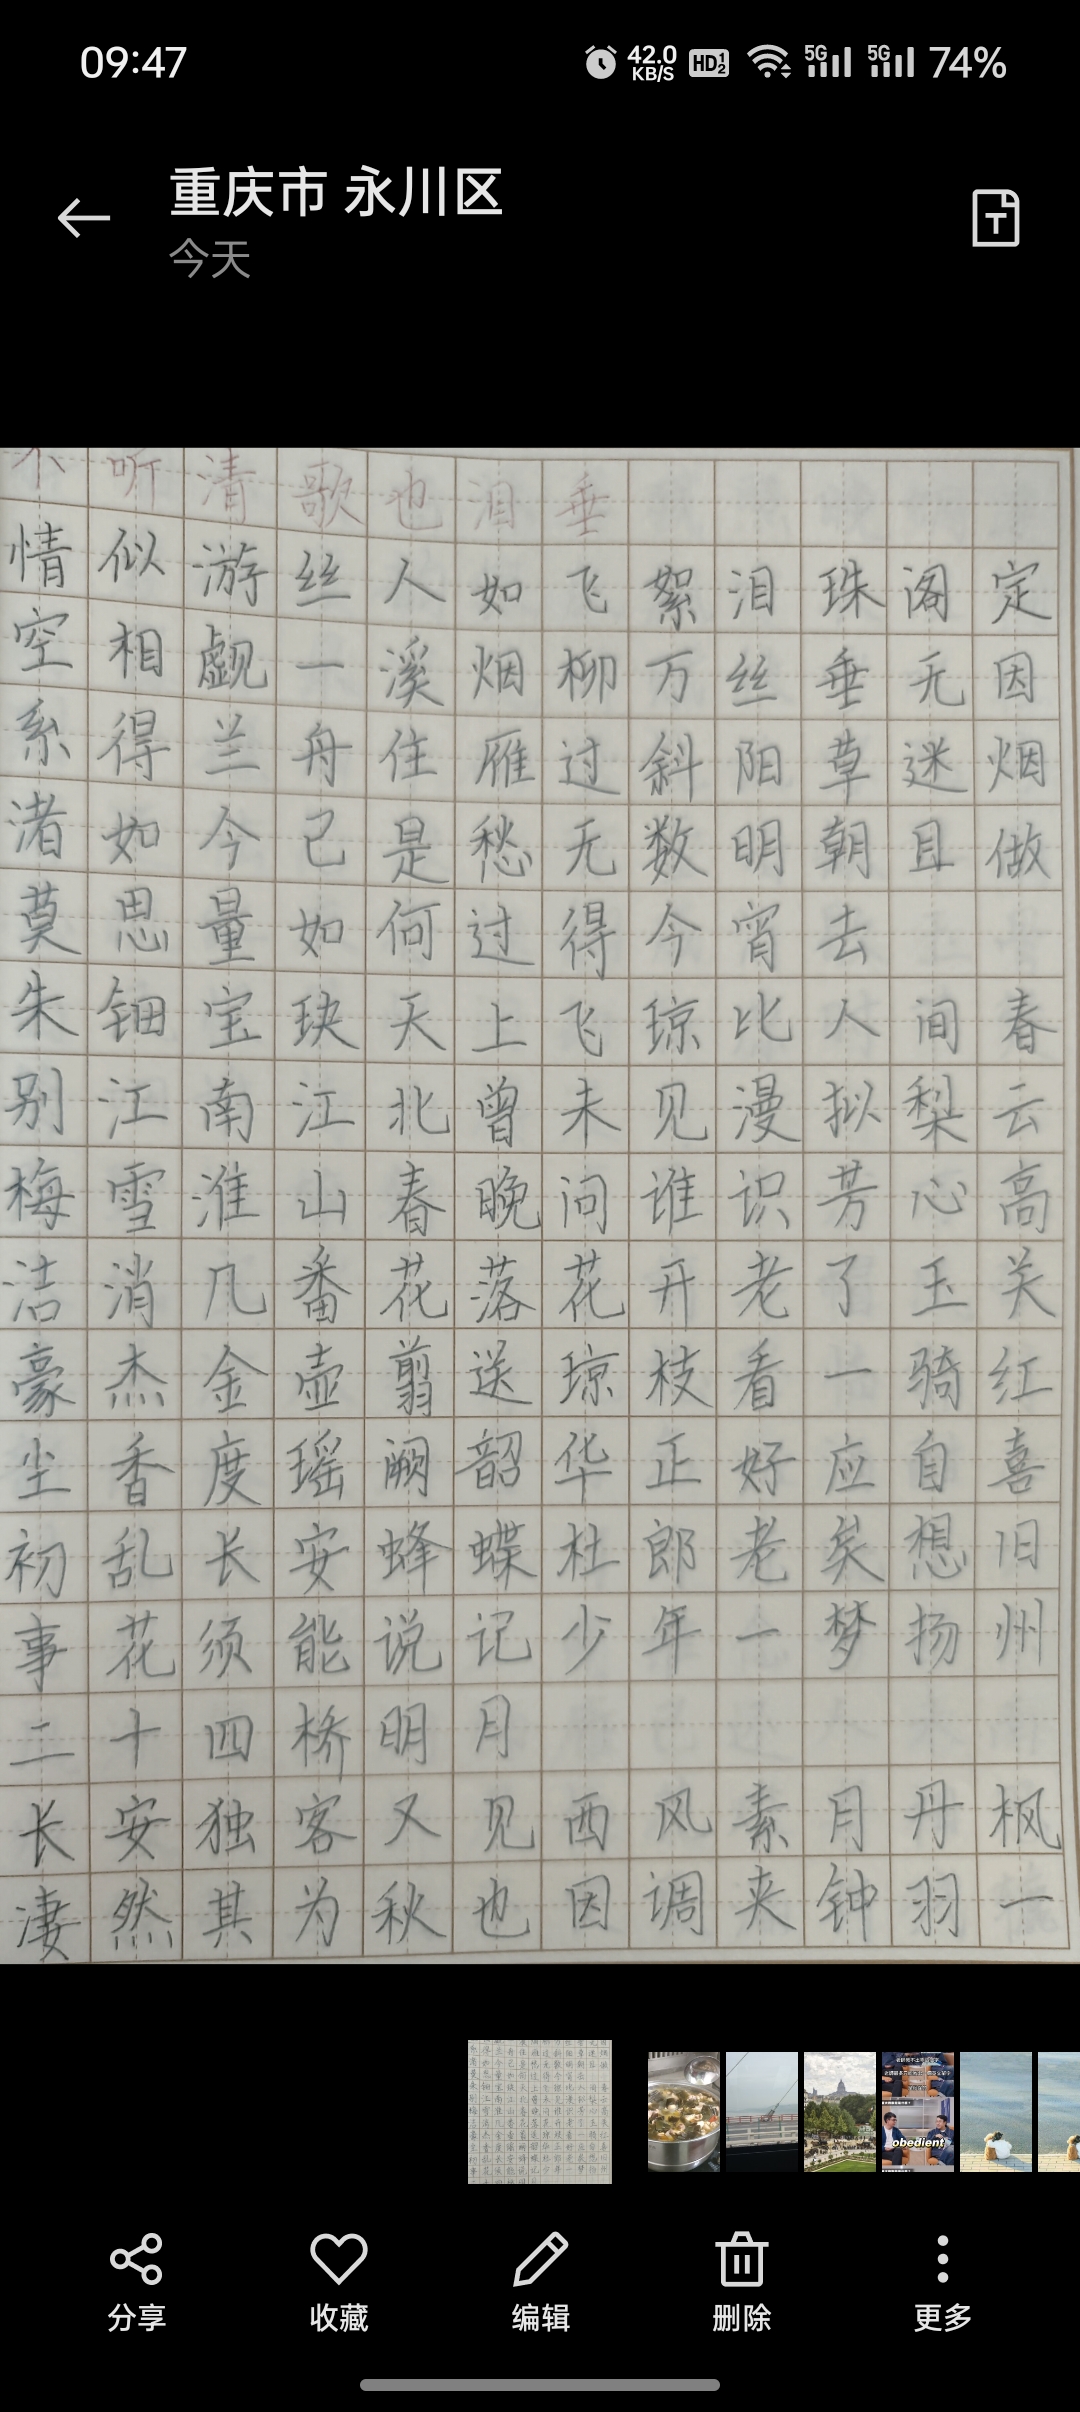 09:47
42.0 KB/S HD 1 2 5G 5G 74%
重庆市 永川区
今天
T
不听清歌也泪垂
情似游丝人如飞絮泪珠阁定
空相觑一溪烟柳万丝垂无因
系得兰舟住雁过斜阳草迷烟
渚如今已是愁无数明朝且做
莫思量如何过得今宵去
朱钿宝玦天上飞琼比人间春
别江南江北曾未见漫拟梨云
梅雪淮山春晚问谁识芳心高
洁消几番花落花开老了玉关
豪杰金壶翦送琼枝看一骑红
尘香度瑶阙韶华正好应自喜
初乱长安蜂蝶杜郎老矣想旧
事花须能说记少年一梦扬州
二十四桥明月
长安独客又见西风素月丹枫
凄然其为秋也因调夹钟羽一
obedient
分享 收藏 编辑 删除 更多